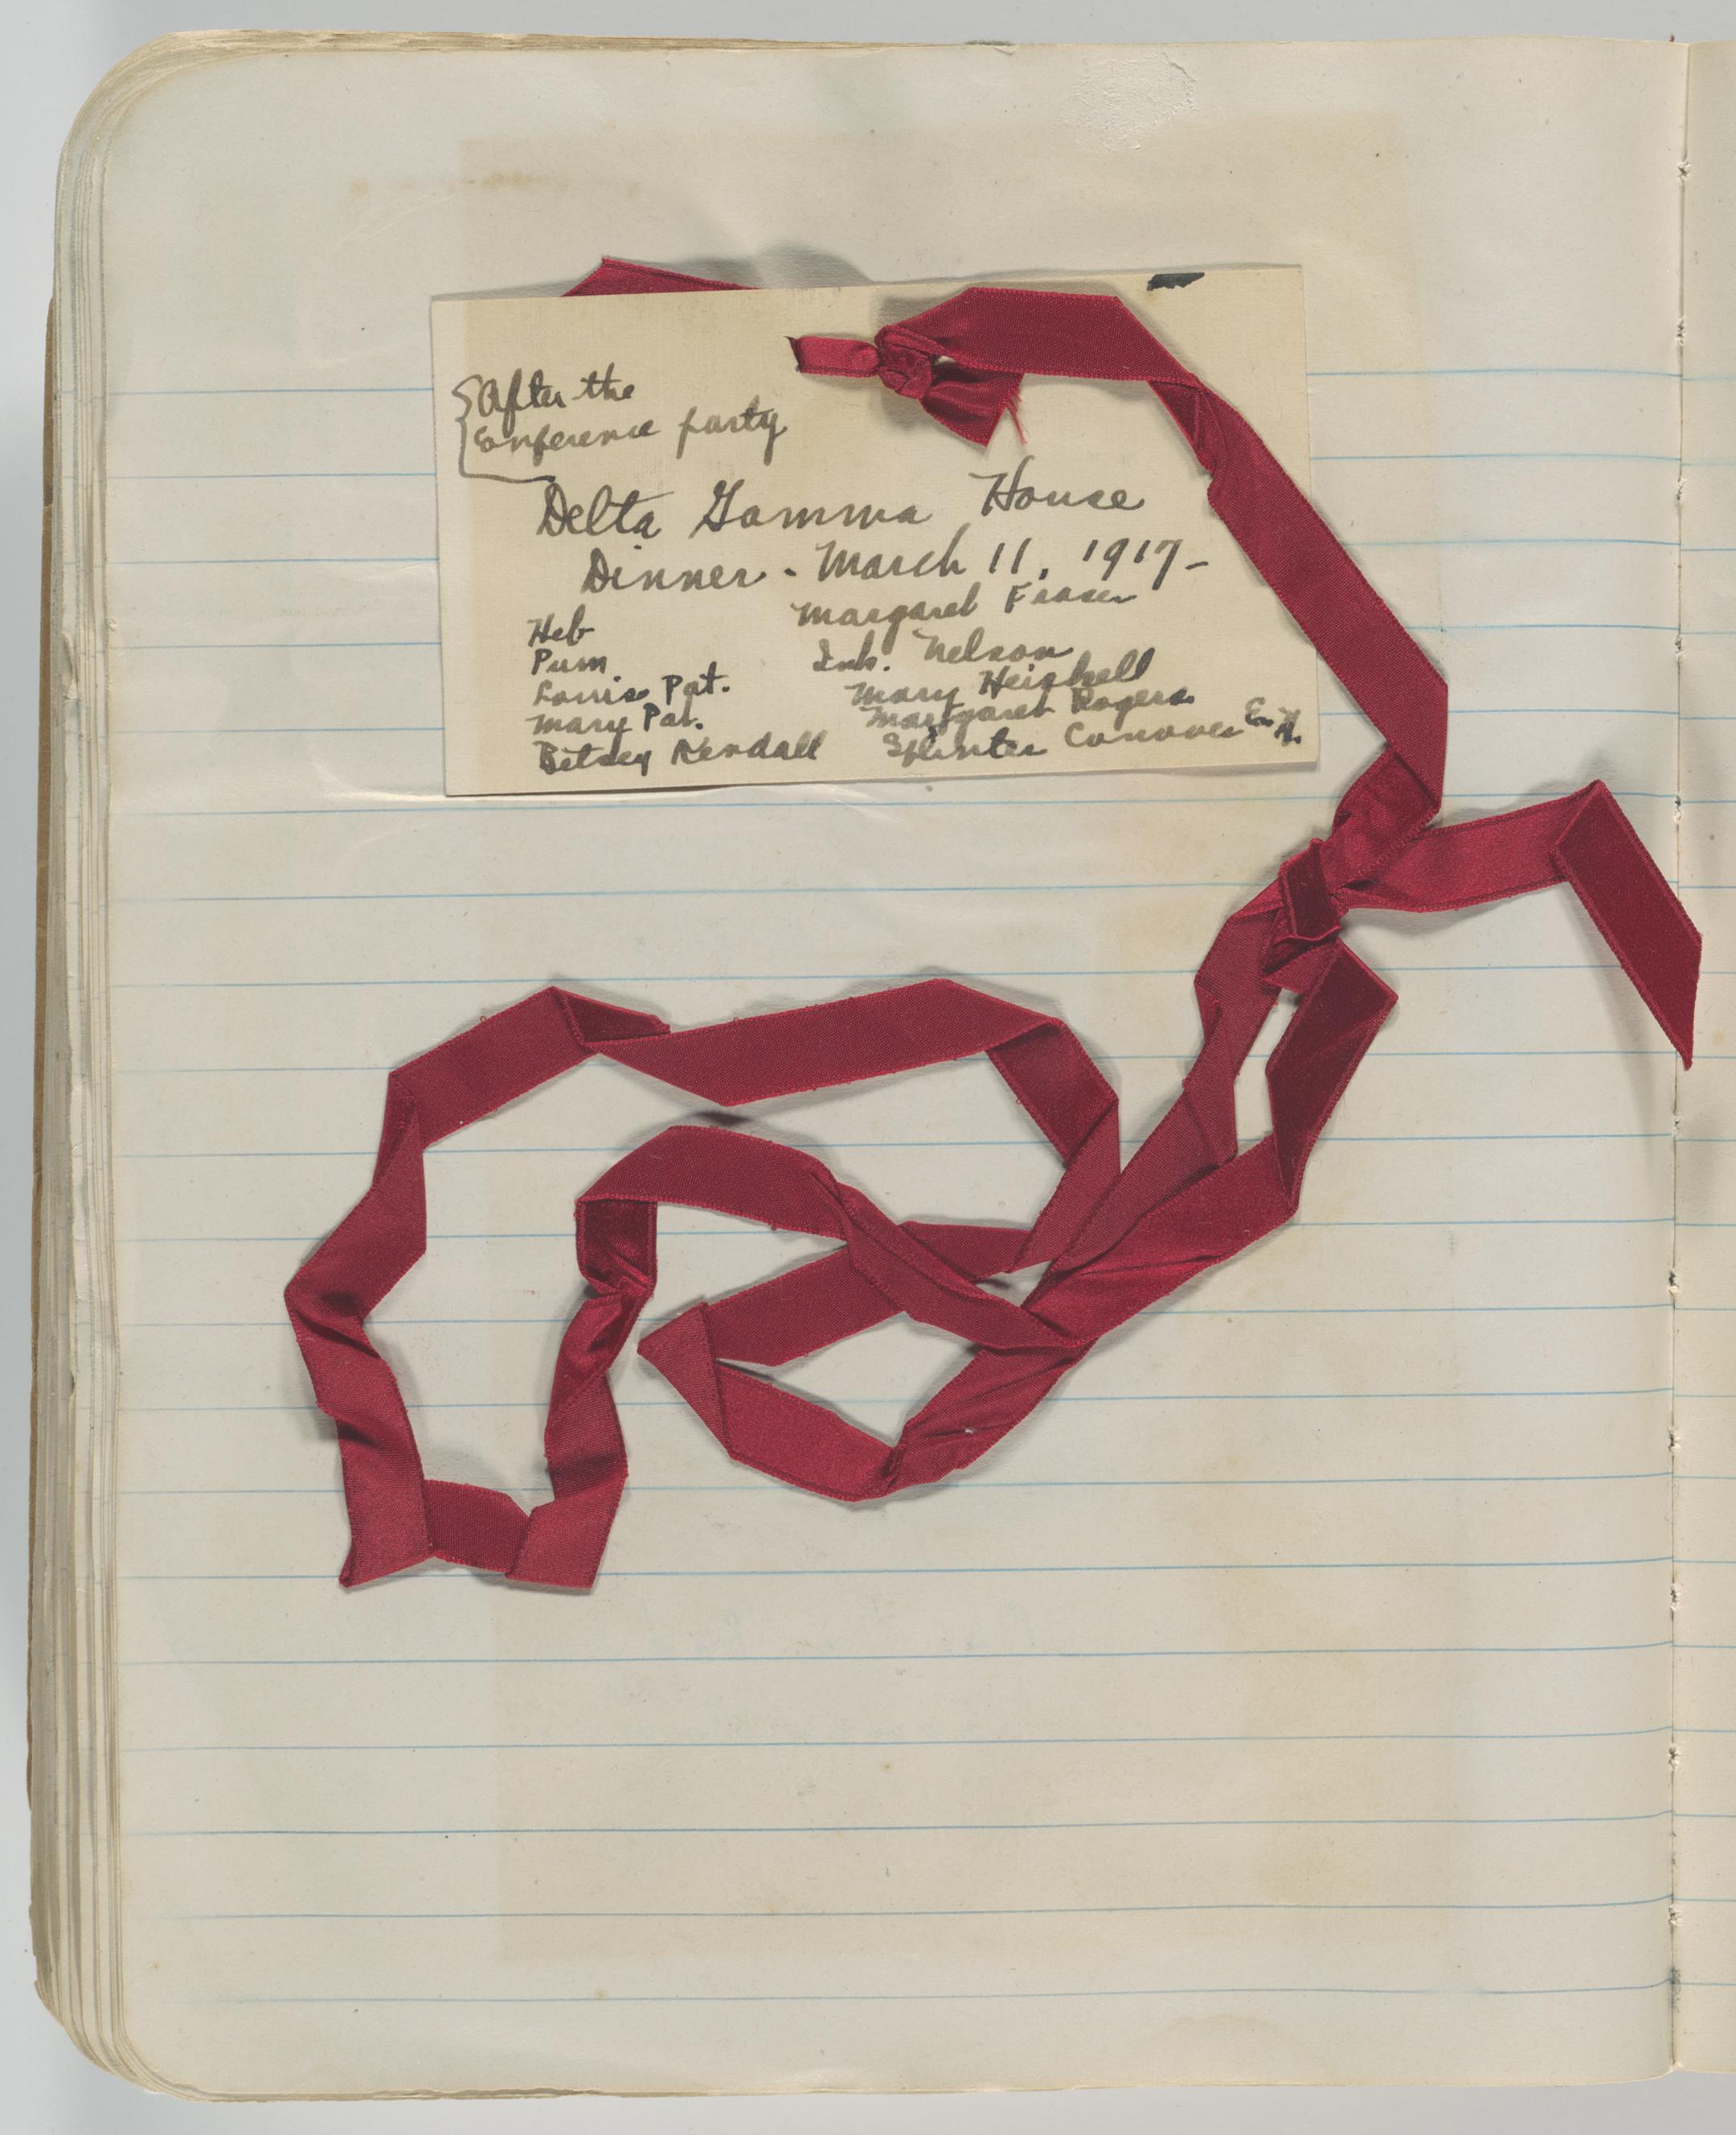 After the
Conference party
Delta Gamma House
Dinner - March 11, 1917 -
Heb
Pum
Louise Pat.
Mary Pat.
Betsey Kendall
Margaret Fraser
Nelson
Mary Heiskell
Margaret Rogers
Splinter Conover E. H.